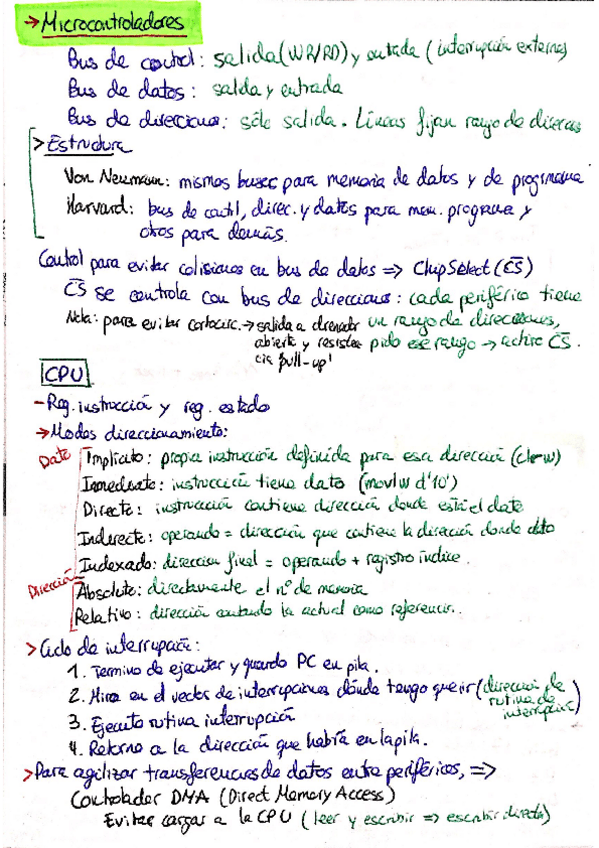 → Microcontroladores
Bus de control: salida (WR/RD) y entrada (interrupción externa)
Bus de datos: salida y entrada
Bus de direcciones: sólo salida. Líneas fijan rango de direcns
> Estructura
Von Neumann: mismos buses para memoria de datos y de programa
Harvard: bus de contl, direc. y datos para mem. programa y
otros para demás.
Control para evitar colisiones en bus de datos => Chip Select (C̅S̅)
C̅S̅ se controla con bus de direcciones: cada periférico tiene
un rango de direcciones,
pido ese rango → activo C̅S̅.
Nota: para evitar cortocirc. → salida a drenador
abierto y resisten
cia pull-up!
CPU
- Reg. instrucción y reg. estado
→ Modos direccionamiento:
Dato
Implícito: propia instrucción definida para esa dirección (clrw)
Inmediato: instrucción tiene dato (movlw d'10')
Directo: instrucción contiene dirección donde está el dato
Indirecto: operando = dirección que contiene la dirección donde dato
Indexado: direccion final = operando + registro índice.
Dirección
Absoluto: directamente el nº de memoria
Relativo: dirección contando la actual como referencia.
> Ciclo de interrupción:
1. Termino de ejecutar y guardo PC en pila.
2. Miro en el vector de interrupciones dónde tengo que ir (dirección de
rutina de
interrupción)
3. Ejecuto rutina interrupción
4. Retorno a la dirección que había en la pila.
> Para agilizar transferencias de datos entre periféricos, =>
Controlador DMA (Direct Memory Access)
Evitar cargar a la CPU (leer y escribir => escribir directo)